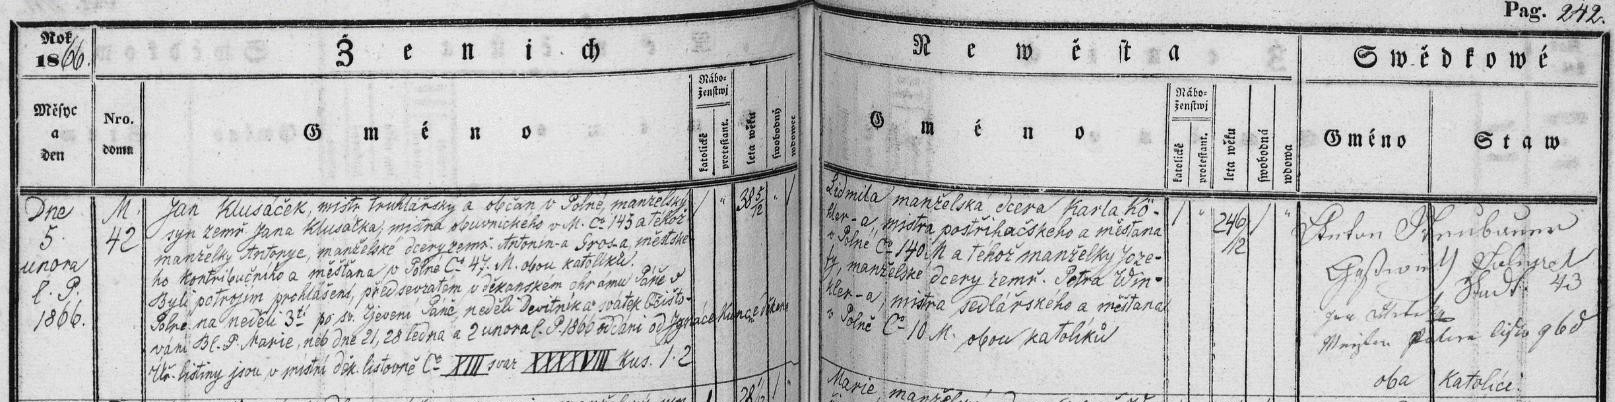 Pag. 242.
Rok 1866.
Ženich
Newěsta
Swědkowé
Měsyc a den
Nro. domu
Gméno
Nábo-ženstwj
katolické
protestant.
leta wěku
swobodný
wdowec
Gméno
Nábo-ženstwj
katolické
protestant.
leta wěku
swobodná
wdowa
Gméno
Staw
Dne
5.
února
l. P.
1866.
M.
42
Jan Klusáček, mistr truhlářský a občan v Polné, manželský
syn zemř. Jana Klusáčka, mistra obuvnického v M. Co 143 a téhož
manželky Antonye, manželské dcery zemř. Antonín-a Grosa, městské-
ho kontribučního a měšťana v Polné Co 47. M. obou katolíků.
Byli potrojím prohlášení, předsevzatém v děkanském chrámu Páně v
Polné na neděli 3tí po sv. Zjevení Páně, neděli Devítník a svátek Čisto-
vání Bl. P. Marie, neb dne 21, 28 ledna a 2 února l. P. 1866 oddáni od Ignáce
listiny jsou v místní děk. listovně Co XIII svaz XXXXVIII Kus. 1-2
38 5/12
Ludmila manželská dcera Karla Kö-
hler-a, mistra postřihačského a měšťana
v Polné Co 140 M a téhož manželky Joze-
fy, manželské dcery zemř. Petra Win-
kler-a, mistra sedlářského a měšťana
v Polné Co 10 M. obou katolíků
24 6/12
Anton
Gastwirth
Stadt 43
Polna číslo 96 d
oba katolíci.
Marie, manžel